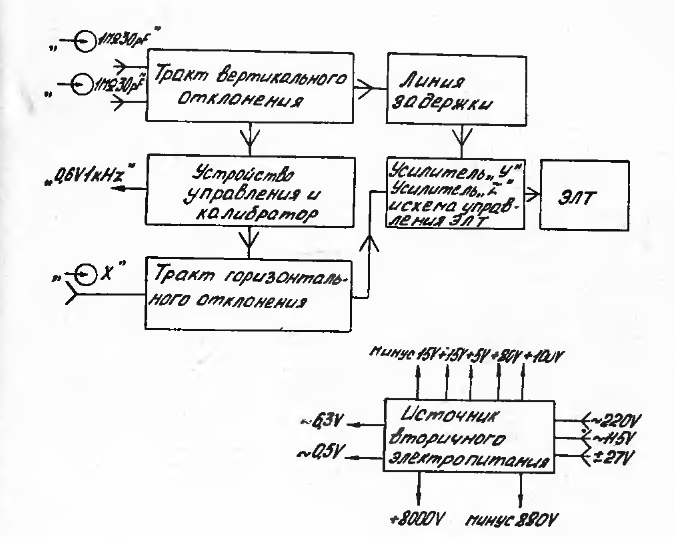 „ 1MΩ30pF"
„ 1MΩ30pF"
Тракт вертикального
отклонения
Линия
задержки
„0,6V1kHz"
Устройство
управления и
калибратор
Усилитель „У"
Усилитель „Z"
и схема управ-
ления ЭЛТ
ЭЛТ
„ X"
Тракт горизонталь-
ного отклонения
минус 15V +15V +5V +80V +100V
~6,3V
~0,5V
Источник
вторичного
электропитания
~220V
~115V
±27V
+8000V
минус